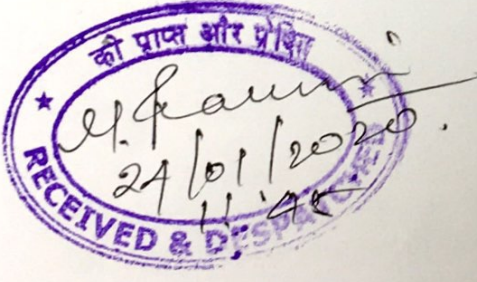 को प्राप्त और प्रेषित
24/01/2020.
11:45
RECEIVED & DESPATCHED